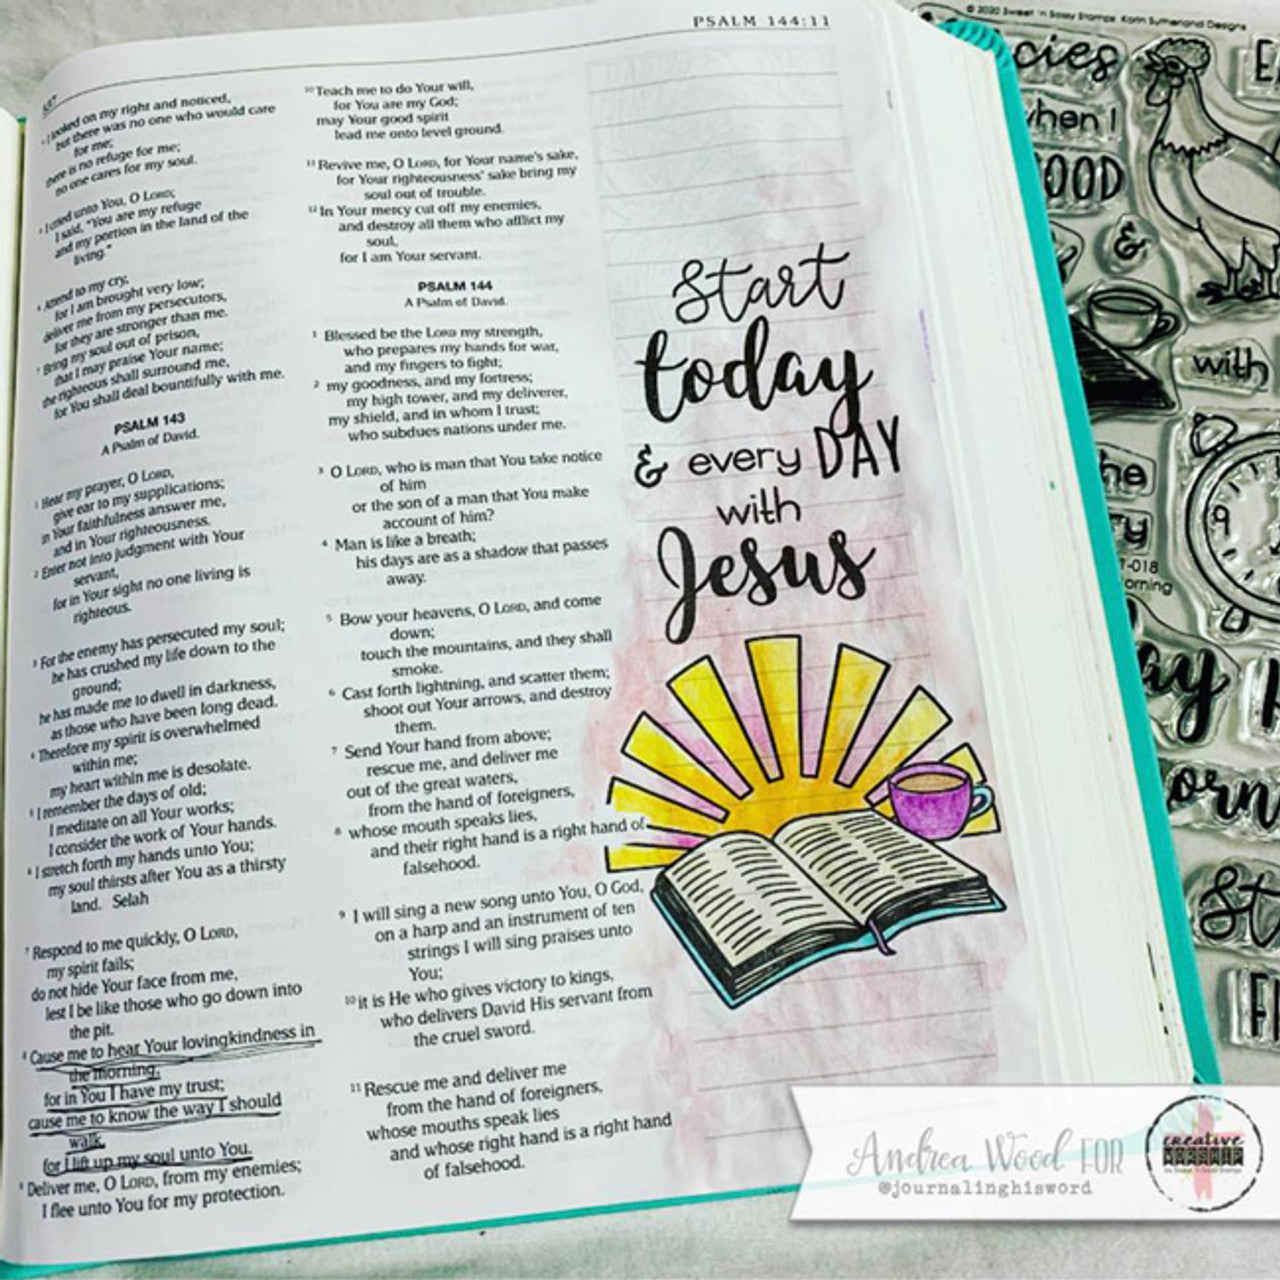 PSALM 144:11
I looked on my right and noticed,
but there was no one who would care
for me;
there is no refuge for me;
no one cares for my soul.
5 I cried unto You, O LORD;
I said, "You are my refuge
and my portion in the land of the
living."
6 Attend to my cry,
for I am brought very low;
deliver me from my persecutors,
for they are stronger than me.
7 Bring my soul out of prison,
that I may praise Your name;
the righteous shall surround me,
for You shall deal bountifully with me.
PSALM 143
A Psalm of David.
1 Hear my prayer, O LORD,
give ear to my supplications;
in Your faithfulness answer me,
and in Your righteousness.
2 Enter not into judgment with Your
servant,
for in Your sight no one living is
righteous.
3 For the enemy has persecuted my soul;
he has crushed my life down to the
ground;
he has made me to dwell in darkness,
as those who have been long dead.
4 Therefore my spirit is overwhelmed
within me;
my heart within me is desolate.
5 I remember the days of old;
I meditate on all Your works;
I consider the work of Your hands.
6 I stretch forth my hands unto You;
my soul thirsts after You as a thirsty
land. Selah
7 Respond to me quickly, O LORD,
my spirit fails;
do not hide Your face from me,
lest I be like those who go down into
the pit.
8 Cause me to hear Your lovingkindness in
the morning,
for in You I have my trust;
cause me to know the way I should
walk,
for I lift up my soul unto You.
9 Deliver me, O LORD, from my enemies;
I flee unto You for my protection.
10 Teach me to do Your will,
for You are my God;
may Your good spirit
lead me onto level ground.
11 Revive me, O LORD, for Your name's sake,
for Your righteousness' sake bring my
soul out of trouble.
12 In Your mercy cut off my enemies,
and destroy all them who afflict my
soul,
for I am Your servant.
PSALM 144
A Psalm of David.
1 Blessed be the LORD my strength,
who prepares my hands for war,
and my fingers to fight;
2 my goodness, and my fortress;
my high tower, and my deliverer,
my shield, and in whom I trust;
who subdues nations under me.
3 O LORD, who is man that You take notice
of him
or the son of a man that You make
account of him?
4 Man is like a breath;
his days are as a shadow that passes
away.
5 Bow your heavens, O LORD, and come
down;
touch the mountains, and they shall
smoke.
6 Cast forth lightning, and scatter them;
shoot out Your arrows, and destroy
them.
7 Send Your hand from above;
rescue me, and deliver me
out of the great waters,
from the hand of foreigners,
8 whose mouth speaks lies,
and their right hand is a right hand of
falsehood.
9 I will sing a new song unto You, O God,
on a harp and an instrument of ten
strings I will sing praises unto
You;
10 it is He who gives victory to kings,
who delivers David His servant from
the cruel sword.
11 Rescue me and deliver me
from the hand of foreigners,
whose mouths speak lies
and whose right hand is a right hand
of falsehood.
Start
today
& every DAY
with
Jesus
© 2020 Sweet 'n Sassy Stamps Karin Sutherland Designs
cies
when I
OOD
&
with
he
ry
9
T-018
orning
ay
orn
St
Andrea Wood FOR
@journalinghisword
creative
WORSHIP